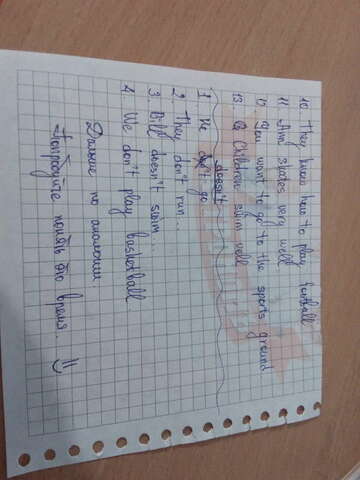 10. They know how to play football
11. Ann skates very well
15. You want to go to the sports ground
13. Children swim well
doesn't
1. He go
2. They don't run...
3. Bill doesn't swim...
4. We don't play basketball
Дальше по аналогии.
Попробуйте понять это время =)